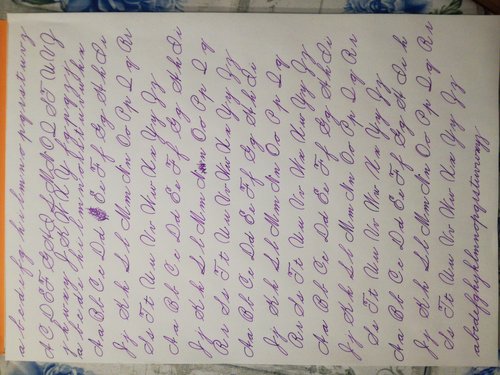 a b c d e f g h i k l m n o p q r s t u v
Aa Bb Cc Dd Ee Ff Gg Hh Ii
Jj Kk Ll Mm Nn Oo Pp Qq Rr
Ss Tt Uu Vv Ww Xx Yy Zz
Aa Bb Cc Dd Ee Ff Gg Hh Ii
Jj Kk Ll Mm Nn Oo Pp Qq
Rr Ss Tt Uu Vv Ww Xx Yy Zz
Aa Bb Cc Dd Ee Ff Gg Hh Ii
Jj Kk Ll Mm Nn Oo Pp Qq
Rr Ss Tt Uu Vv Ww Xx Yy Zz
Aa Bb Cc Dd Ee Ff Gg Hh Ii
Jj Kk Ll Mm Nn Oo Pp Qq Rr
Ss Tt Uu Vv Ww Xx Yy Zz
Aa Bb Cc Dd Ee Ff Gg Hh
Jj Kk Ll Mm Nn Oo Pp Qq Rr
Ss Tt Uu Vv Ww Xx Yy Zz
abcdefghijklmnopqrstuvwxyz